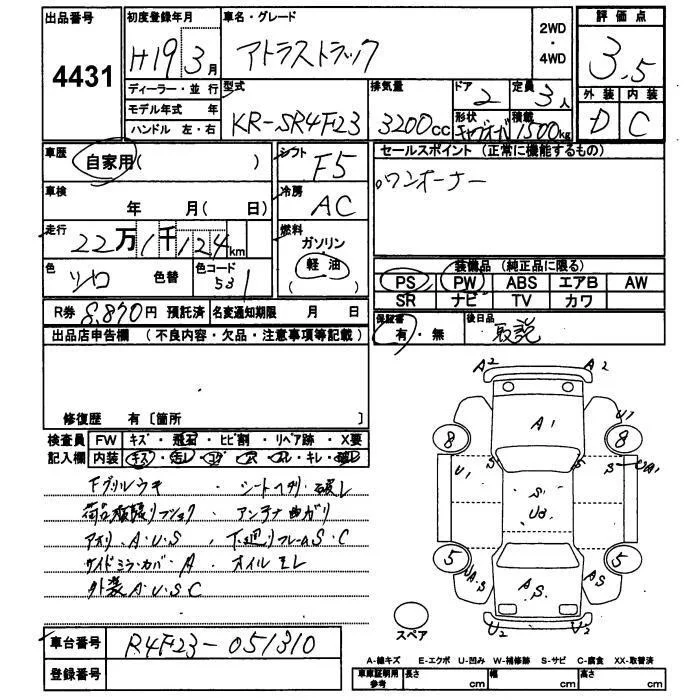 出品番号
4431
初度登録年月
H19 3月
車名・グレード
アトラストラック
2WD
・
4WD
評価点
3.5
ディーラー・並行
モデル年式 年
ハンドル 左・右
型式
KR-SR4F23
排気量
3200cc
ドア
2
定員
3人
形状
積載
1500kg
外装 内装
D C
車歴
自家用( )
シフト
F5
セールスポイント (正常に機能するもの)
○ワンオーナー
車検
年 月( 日)
冷房
AC
走行
22万1千124km
燃料
ガソリン
軽油
色
シロ 色替
色コード
531
装備品 (純正品に限る)
PS PW ABS エアB AW
SR ナビ TV カワ
R券 8,870円 預託済 名変通知期限 月 日
保証書
有・無
後日品
取説
出品店申告欄 (不良内容・欠品・注意事項等記載)
修復歴 有 〔箇所 〕
検査員 FW キズ・飛石・ヒビ割・リペア跡・X要
記入欄 内装 キズ・汚レ・コゲ・穴・スレ・キレ・破レ
Fグリルウキ ・シートヘタリ・破レ
・アンテナ曲ガリ
アオリ・A・U・S ・下廻リフレームS・C
サイドミラーカバーA ・オイルモレ
外装A・U・S・C
A2 A2
A1
8 8
U1
U1 S S S UA1
S1
U3
5 5
UA・S AS AS
U2 U2
スペア
車台番号 R4F23-051310
登録番号
A-線キズ E-エクボ U-凹み W-補修跡 S-サビ C-腐食 XX-取替済
車庫証明用参考 長さ cm 幅 cm 高さ cm